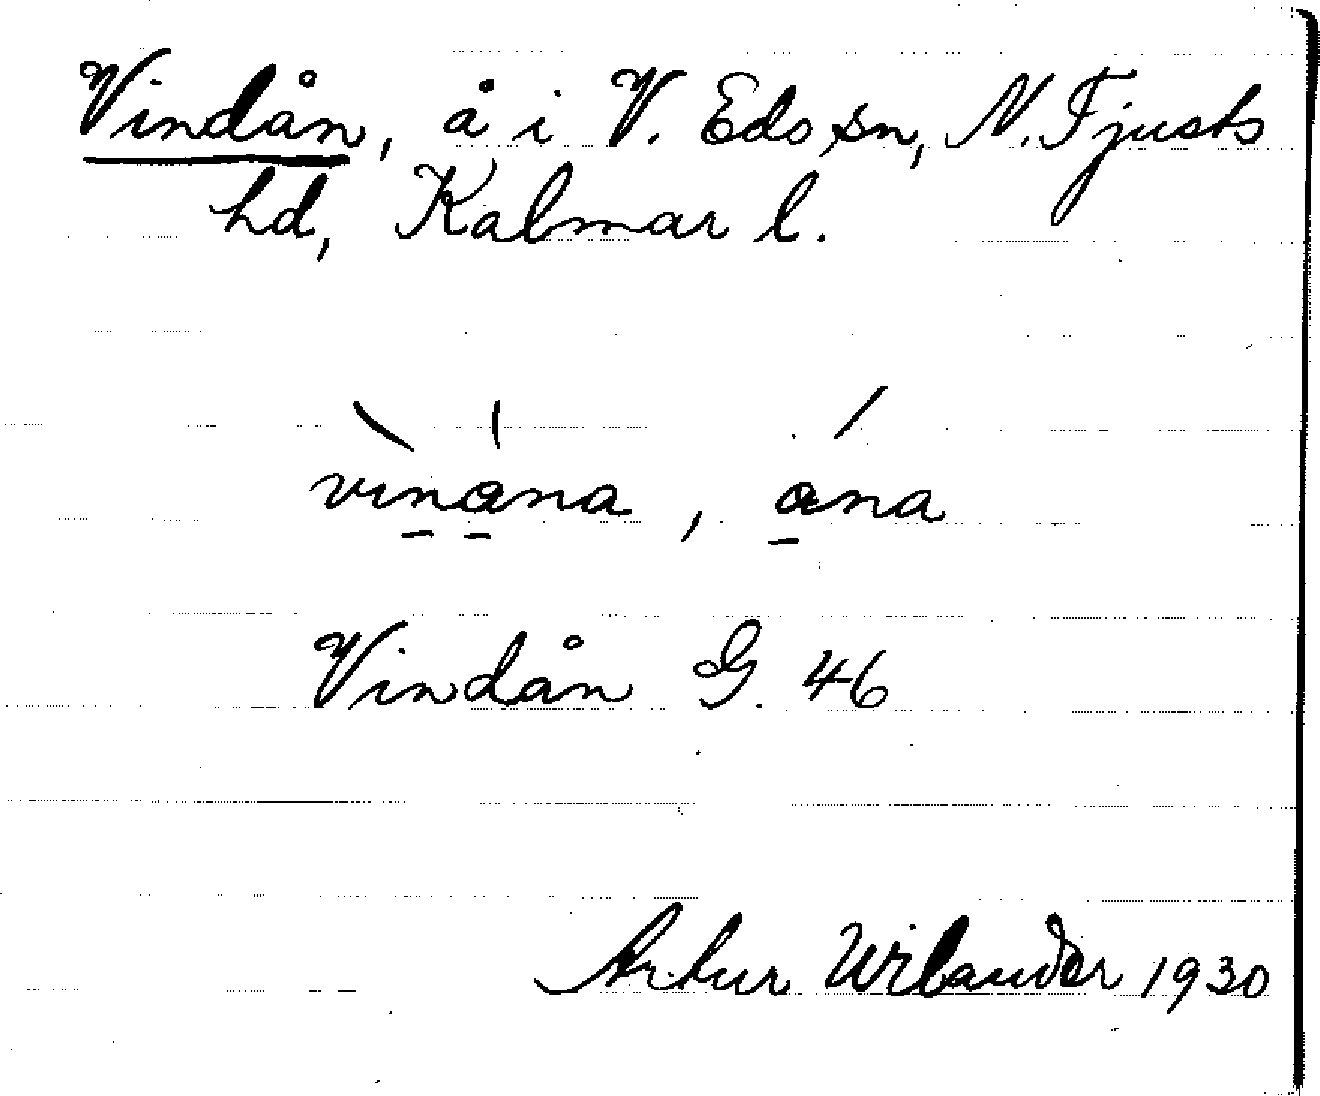 Vindån, å i V. Eds sn, N. Tjusts
hd, Kalmar l.
vinana, ana
Vindån G. 46
Artur Wilander 1930